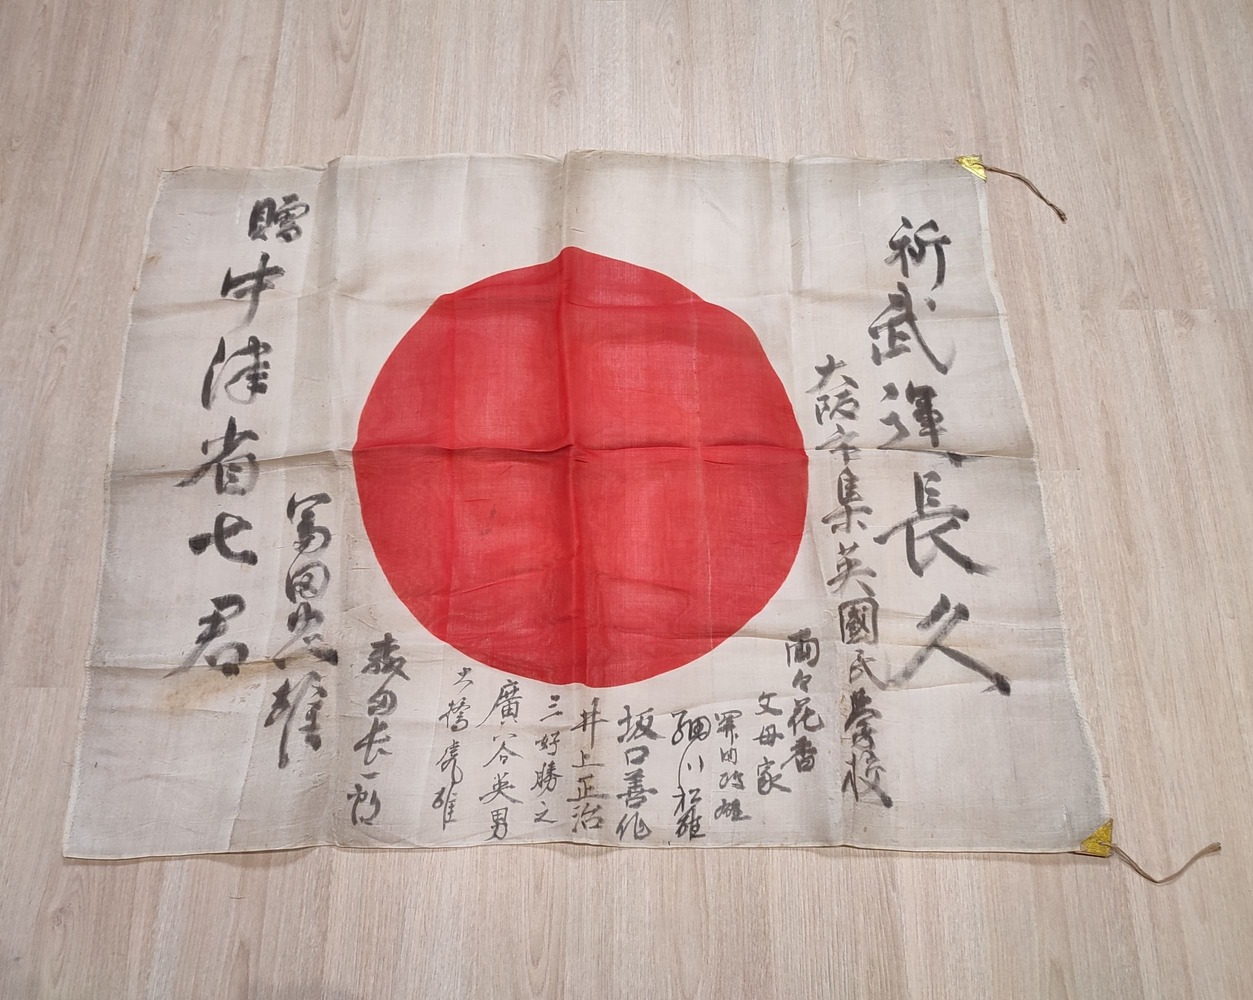 祈武運長久
大阪市集英國民學校
雨々花香
父母家
細川松雄
坂口善作
井上正治
三好勝之
廣谷英男
大橋虎雄
森田長一郎
冨田忠雄
贈中津省七君